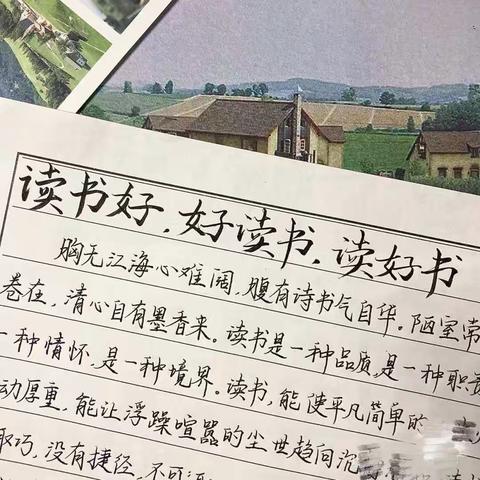 读书好,好读书,读好书
胸无江海心难阔,腹有诗书气自华。陋室常
卷在,清心自有墨香来。读书是一种品质,是一种职责
一种情怀,是一种境界。读书,能使平凡简单的
动厚重,能让浮躁喧嚣的尘世趋向沉
取巧,没有捷径,不可